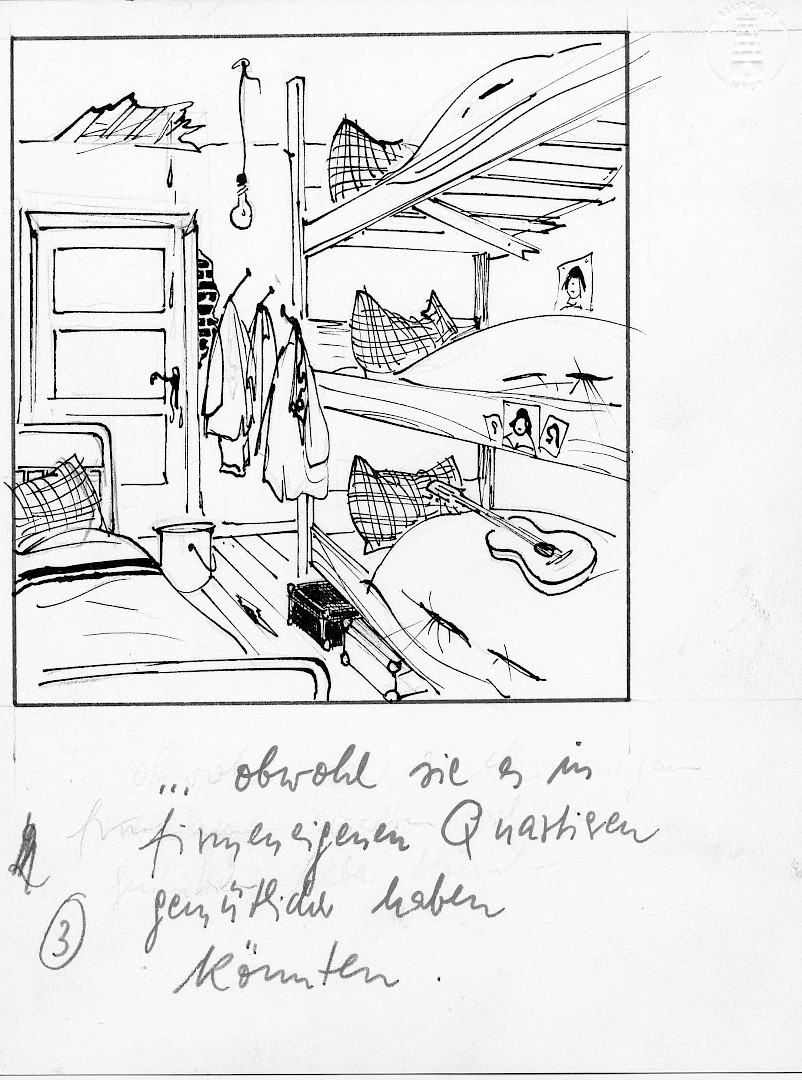 ... obwohl sie es in
firmeneigenen Quartieren
gemütlicher haben
könnten.
3